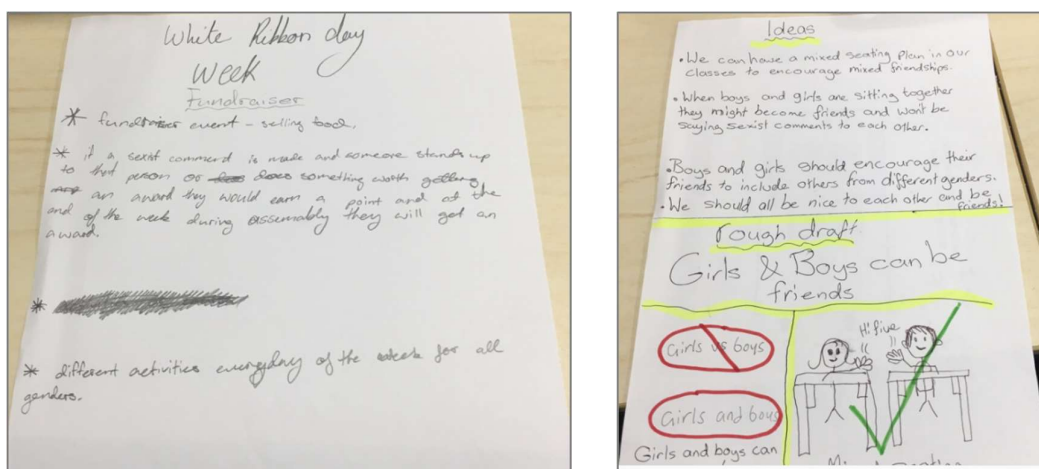 White Ribbon day
Week
Fundraiser
* fundraiser event - selling food.
* if a sexist commend is made and someone stands up
to that person or does something worth getting
an award they would earn a point and at the
end of the week during assembly they will get an
award.
*
* different activities everyday of the week for all
genders.
Ideas
• We can have a mixed seating Plan in our
classes to encourage mixed friendships.
• When boys and girls are sitting together
they might become friends and won't be
saying sexist comments to each other.
• Boys and girls should encourage their
friends to include others from different genders.
• We should all be nice to each other and be
friends!
rough draft
Girls & Boys can be
friends
Girls vs boys
Hi five
Girls and boys
Girls and boys can